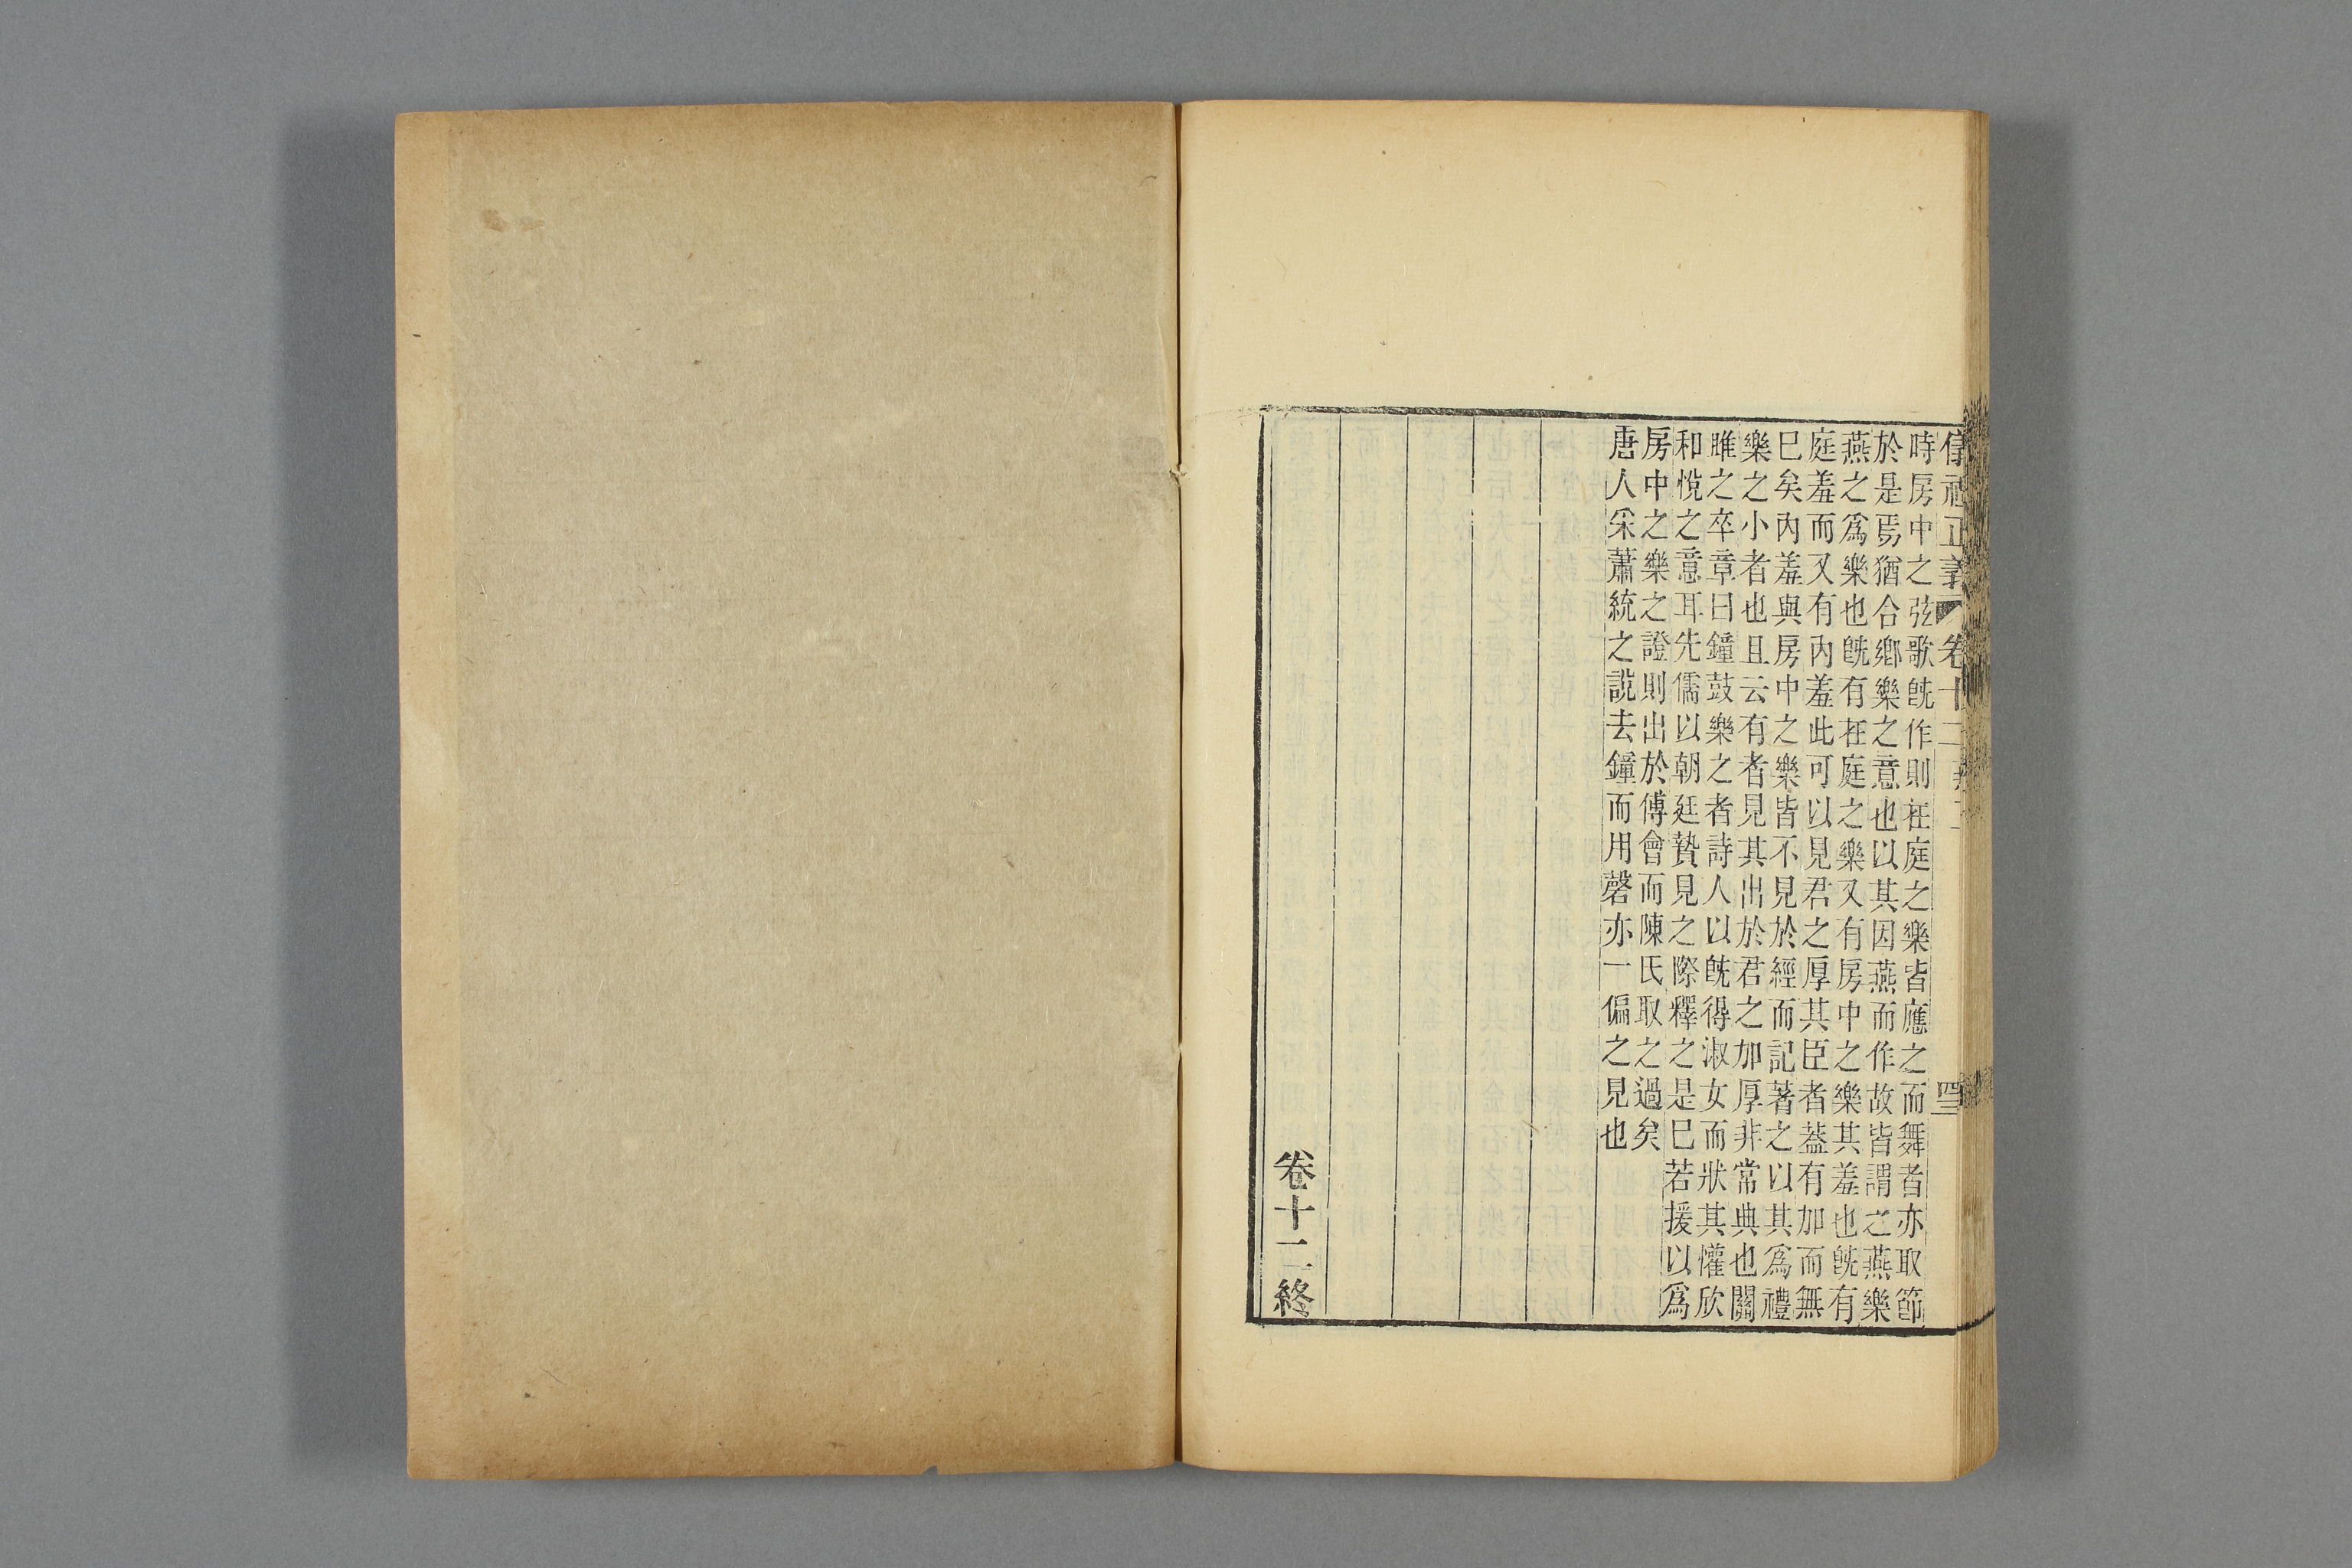 時房中之弦歌旣作則在庭之樂皆應之而舞者亦取節
於是焉猶合鄉樂之意也以其因燕而作故皆謂之燕樂
燕之爲樂也旣有在庭之樂又有房中之樂其羞也旣有
庭羞而又有內羞此可以見君之厚其臣者葢有加而無
已矣內羞與房中之樂皆不見於經而記著之以其爲禮
樂之小者也且云有者見其出於君之加厚非常典也關
雎之卒章曰鐘鼓樂之者詩人以旣得淑女而狀其懽欣
和悅之意耳先儒以朝廷贄見之際釋之是已若援以爲
房中之樂之證則出於傅會而陳氏取之過矣
唐人采蕭統之說去鐘而用磬亦一偏之見也
卷十二終
正義 卷十二